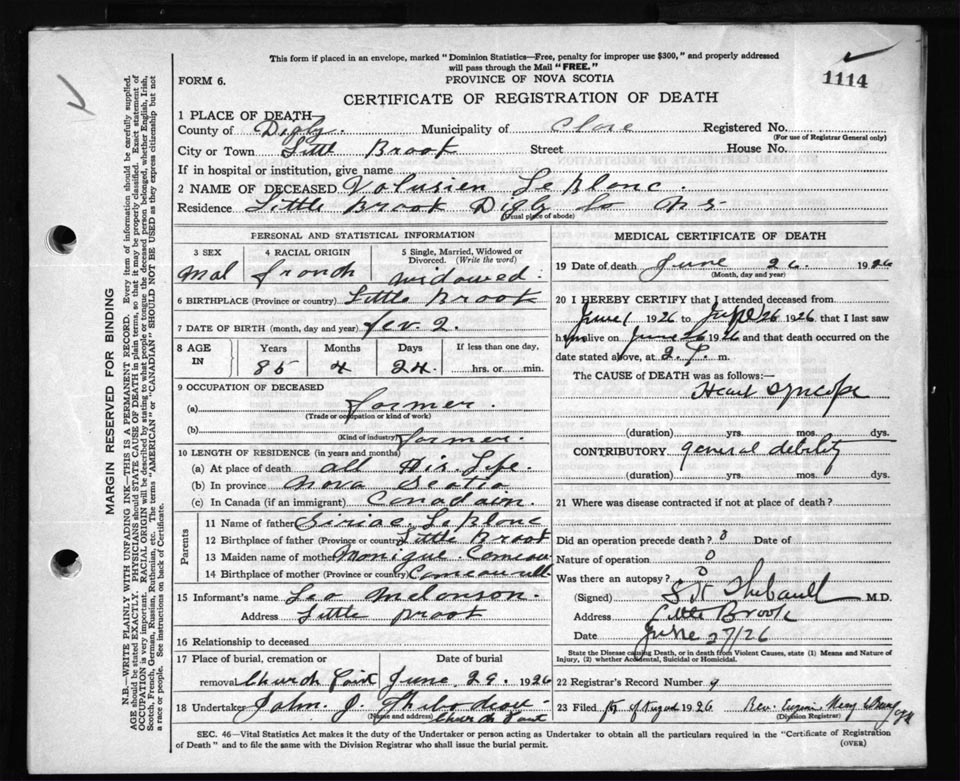 This form if placed in an envelope, marked "Dominion Statistics—Free, penalty for improper use $300," and properly addressed
will pass through the Mail "FREE."
1114
FORM 6.
PROVINCE OF NOVA SCOTIA
CERTIFICATE OF REGISTRATION OF DEATH
1 PLACE OF DEATH
County of Digby. Municipality of Clare Registered No.
(For use of Registrar General only)
City or Town Little Brook Street House No.
If in hospital or institution, give name
2 NAME OF DECEASED Volusien LeBlanc.
Residence Little Brook Digby Co N S
(Usual place of abode)
PERSONAL AND STATISTICAL INFORMATION
3 SEX 4 RACIAL ORIGIN 5 Single, Married, Widowed or Divorced. (Write the word)
Mal french widowed.
6 BIRTHPLACE (Province or country) Little Brook
7 DATE OF BIRTH (month, day and year) fev. 2.
8 AGE IN Years Months Days If less than one day,
85 4 24. hrs. or min.
9 OCCUPATION OF DECEASED
(a) farmer.
(Trade or occupation or kind of work)
(b) farmer.
(Kind of industry)
10 LENGTH OF RESIDENCE (in years and months)
(a) At place of death all His Life.
(b) In province Nova Scotia
(c) In Canada (if an immigrant) Canadain.
Parents
11 Name of father Siriac LeBlanc
12 Birthplace of father (Province or country) Little Brook
13 Maiden name of mother Monique Comeau
14 Birthplace of mother (Province or country)
15 Informant's name Leo Melonson.
Address Little Brook
16 Relationship to deceased
17 Place of burial, cremation or Date of burial
removal Church Point June 29. 1926
18 Undertaker John. J. Thibodeau
(Name and address) Church Point
MEDICAL CERTIFICATE OF DEATH
19 Date of death June 26. 1926
(Month, day and year)
20 I HEREBY CERTIFY that I attended deceased from
June 1 1926 to 26 1926 that I last saw
h alive on June 26 1926 and that death occurred on the
date stated above, at 2. P. m.
The CAUSE of DEATH was as follows:—
Heart syncope
(duration) yrs. mos. dys.
CONTRIBUTORY general debility
(duration) yrs. mos. dys.
21 Where was disease contracted if not at place of death?
Did an operation precede death? 0 Date of
Nature of operation 0
Was there an autopsy? 0
(Signed) Thibault M.D.
Address Little Brook
Date June 27/26
State the Disease causing Death, or in death from Violent Causes, state (1) Means and Nature of
Injury, (2) whether Accidental, Suicidal or Homicidal.
22 Registrar's Record Number 9
23 Filed of August 1926 Rev.
(Division Registrar)
SEC. 46—Vital Statistics Act makes it the duty of the Undertaker or person acting as Undertaker to obtain all the particulars required in the "Certificate of Registration
of Death" and to file the same with the Division Registrar who shall issue the burial permit.
(OVER)
MARGIN RESERVED FOR BINDING
N.B.—WRITE PLAINLY WITH UNFADING INK—THIS IS A PERMANENT RECORD. Every item of information should be carefully supplied.
AGE should be stated EXACTLY. PHYSICIANS should STATE CAUSE OF DEATH in plain terms, so that it may be properly classified. Exact statement of
OCCUPATION is very important. RACIAL ORIGIN will be described by stating to what people or tongue the deceased person belonged, whether English, Irish,
Scotch, French, German, Russian, Ruthenian, etc. The terms "AMERICAN" or "CANADIAN" SHOULD NOT BE USED as they express citizenship but not
a race or people. See instructions on back of Certificate.